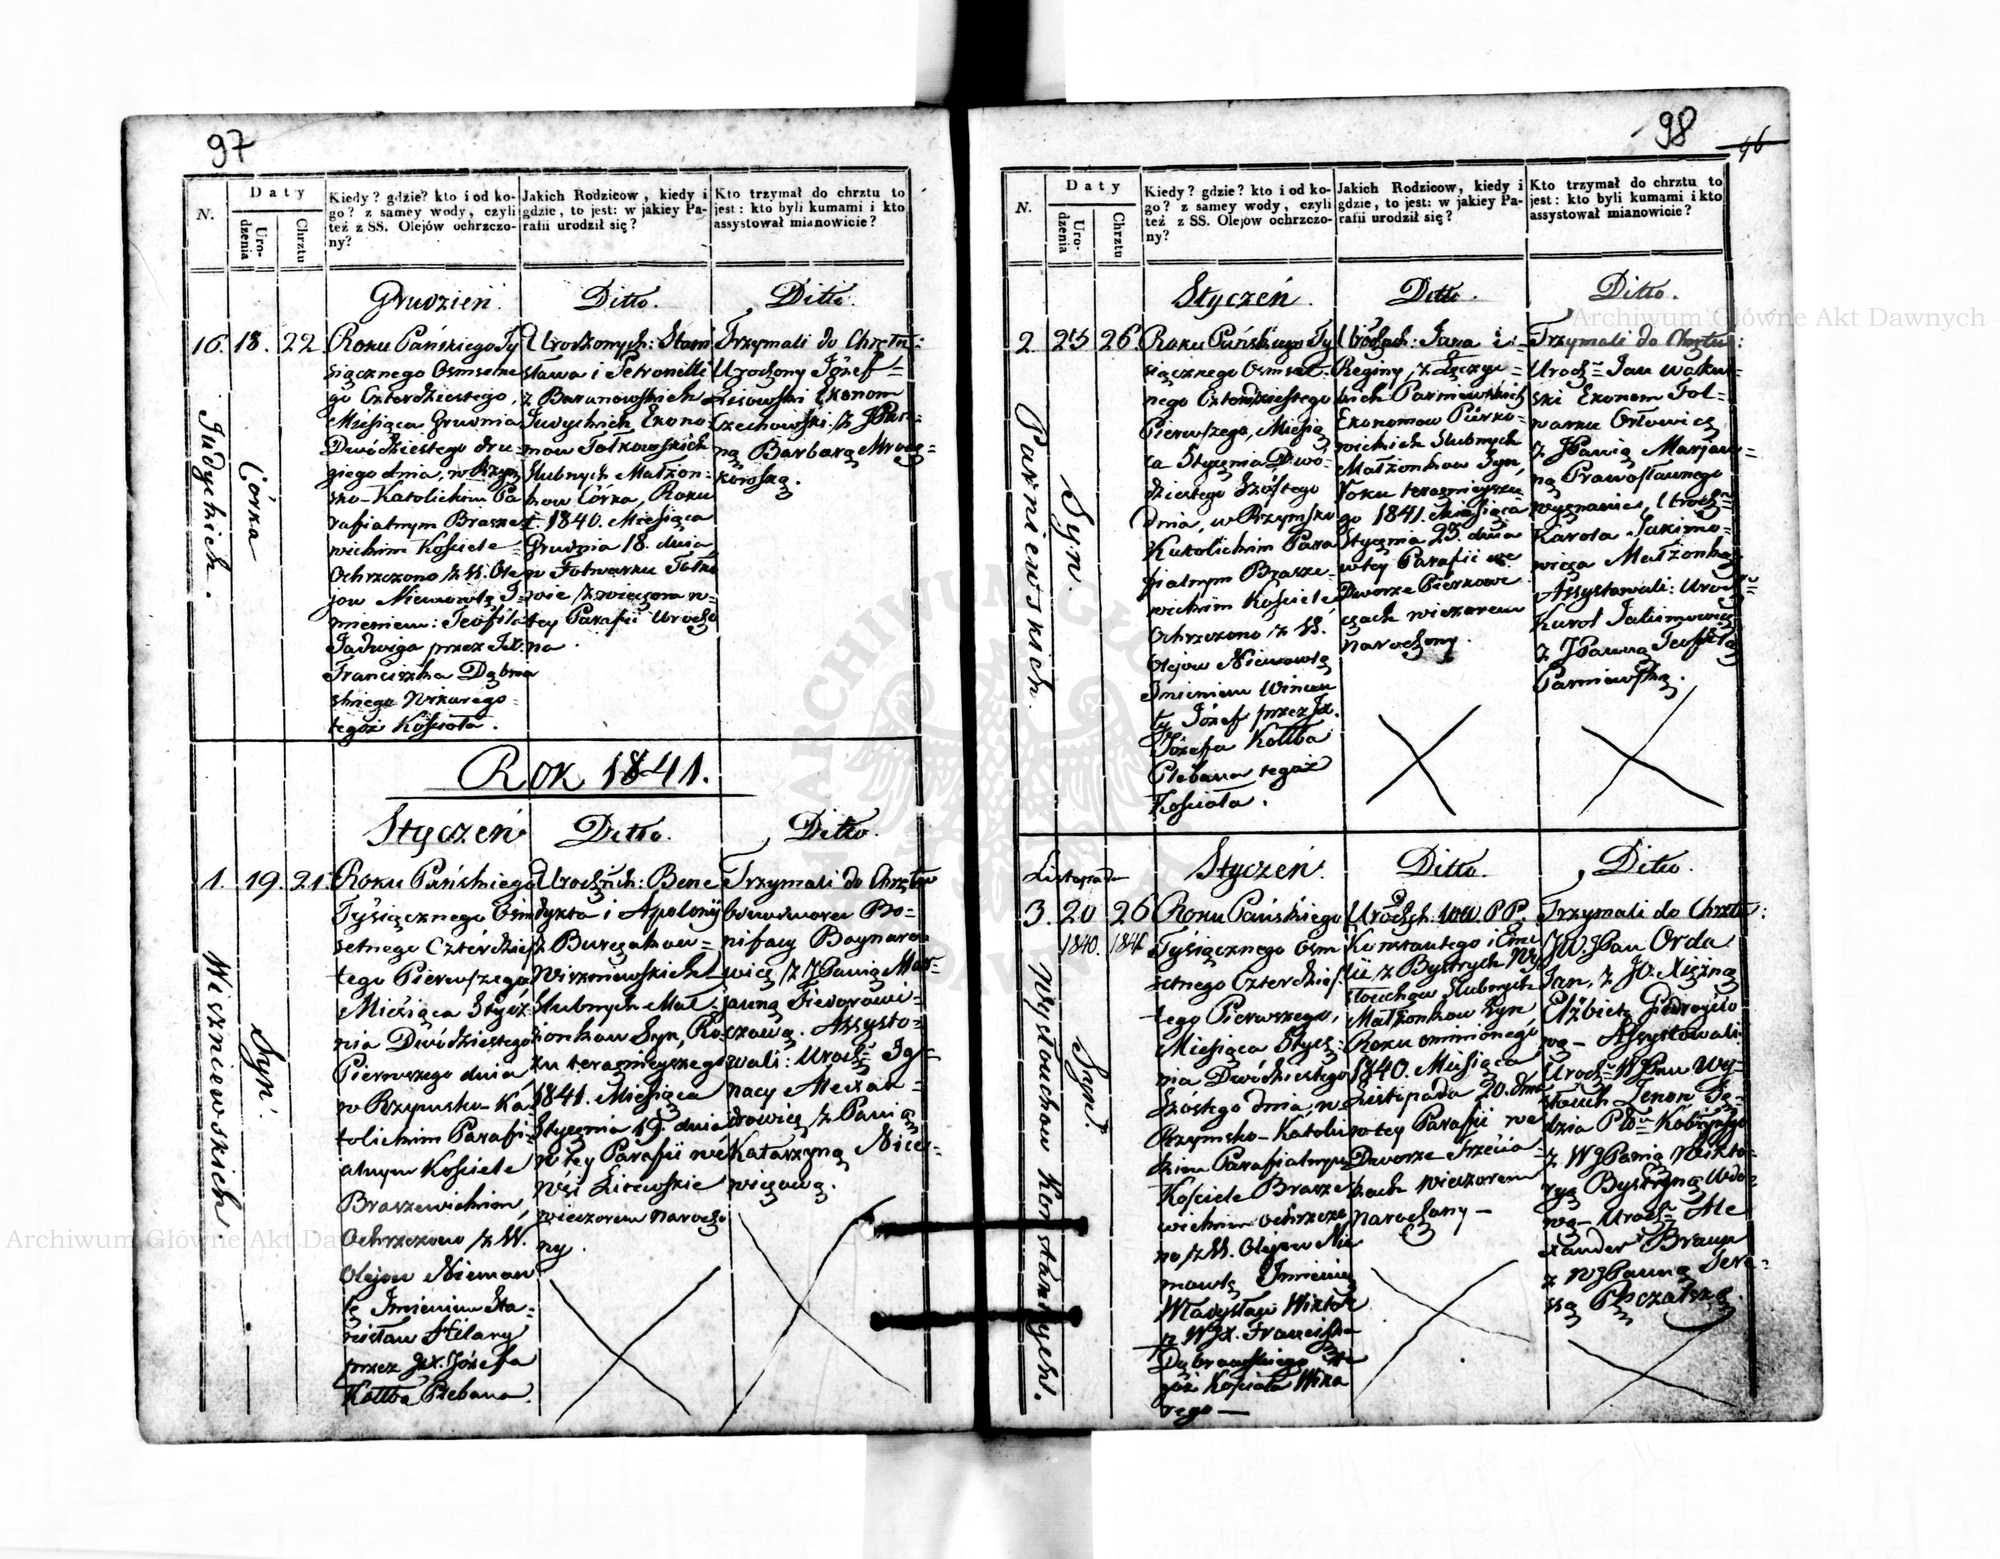 97
N.
Daty
Urodzenia
Chrztu
Kiedy? gdzie? kto i od ko-
go? z samey wody, czyli
też z SS. Olejów ochrzczo-
ny?
Jakich Rodzicow, kiedy i
gdzie, to jest: w jakiey Pa-
rafii urodził się?
Kto trzymał do chrztu to
jest: kto byli kumami i kto
assystował mianowicie?
Grudzień.
Ditto.
Ditto.
16. 18. 22
Judyckich.
Córka
Roku Pańskiego Ty
siącznego Osmsetne
go Czterdziestego,
Miesiąca Grudnia
Dwódziestego dru
giego dnia, w Rzym
sko-Katolickim Pa
rafialnym Brasze
wickim Kościele
Ochrzczono z SS. Ole
jow Niemowlę I-
mieniem: Teofila
Jadwiga przez JX.
Franciszka Dąbro
skiego Wikarego
tegoż Kościoła.
Urodzonych: Stani
sława i Petronelli
z Baranowskich
Judyckich Ekono
mow Tołkowskich
Slubnych Małżon-
kow Córka, Roku
t. 1840. Miesiąca
Grudnia 18. dnia
w Folwarku Tołko
wie z wieczora w
tey Parafii urodzo
na.
Trzymali do Chrztu:
Urodzony Józef
Lisowski Ekonom
Czechowski z JPan-
ną Barbarą Mrocz-
kowską.
Rok 1841.
Styczeń
Ditto.
Ditto.
1. 19. 21.
Wiszniewskich
Syn.
Roku Pańskiego
Tysiącznego Osm
setnego Czterdzies
tego Pierwszego
Miesiąca Stycz
nia Dwódziestego
Pierwszego dnia
w Rzymsko-Ka
tolickim Parafi-
alnym Kościele
Braszewickim,
Ochrzczono z SS.
Olejow Niemow
lę Imieniem Sta-
nisław Hilary
przez JX. Józefa
Kołłba Plebana.
Urodznch: Bene
dykta i Apolonij
z
Wiszniewskich
Slubnych Mał-
żonkow Syn, Ro-
ku teraznieyszego
1841. Miesiąca
Stycznia 19. dnia
w tey Parafii we
Wsi
wieczorem narodzo
ny.
Trzymali do Chrztu
Bo-
nifacy Boynaro
wicz z JPanią Mar-
janną Fiedorowi-
czową. Assysto-
wali: Urodz: Ig-
nacy Alexan-
drowicz z Panią
Katarzyną
98
96
N.
Daty
Urodzenia
Chrztu
Kiedy? gdzie? kto i od ko-
go? z samey wody, czyli
też z SS. Olejów ochrzczo-
ny?
Jakich Rodzicow, kiedy i
gdzie, to jest: w jakiey Pa-
rafii urodził się?
Kto trzymał do chrztu to
jest: kto byli kumami i kto
assystował mianowicie?
Styczeń.
Ditto.
Ditto.
2. 25 26
Parniewskich.
Syn.
Roku Pańskiego Ty
siącznego Osmset-
nego Czterdziestego
Pierwszego, Miesią
ca Stycznia Dwó-
dziestego Szóstego
dnia, w Rzymsko
Katolickim Para
fialnym Brasze-
wickim Kościele
Ochrzczono z SS.
Olejow Niemowlę
Imieniem Wincen
ty Józef przez JX.
Józefa Kołłba
Plebana tegoż
Kościoła.
Urodzch: Jana i
Reginy, z Łęczyc-
kich Parniewskich
Ekonomow Piérko-
wickich Slubnych
Małżonkow Syn,
roku teraznieysze
go 1841. Miesiąca
Stycznia 25. dnia
w tey Parafii we
Dworze Piérkowi
czach wieczorem
narodzony.
Trzymali do Chrztu:
Urodz: Jan Wołkow-
ski Ekonom Fol-
warku Orłowicz
z JPanią Marjan-
ną Prawosławnego
wyznania, Urodzo
Karola Jakimo-
wicza Małżonką
Assystowali: Urodz:
Karol Jakimowicz
z JPanną Teofilą
Parniewską.
Listopada
Styczeń.
Ditto.
Ditto.
3. 20 26
1840. 1841
Wysłouchow Konstantych.
Syn.
Roku Pańskiego
Tysiącznego Osm
setnego Czterdzies
tego Pierwszego,
Miesiąca Stycz-
nia Dwódziestego
Szóstego dnia, w
Rzymsko-Katoli
ckim Parafialnym
Kościele Brasze
wickim ochrzczo
no z SS. Olejow Nie
mowlę Imieniem
Władysław Wiktor
p. WJX. Franciszka
Dąbrowskiego te
goż Kościoła Wika
rego —
Urodzch. WW. PP.
Konstantego i Emi
lii z Bystrych Wy
słouchow Slubnych
Małżonkow Syn
Roku ominionego
1840. Miesiąca
Listopada 20. dnia
w tey Parafii we
Dworze
wieczorem
narodzony —
Trzymali do Chrztu:
JWJPan Orda
Jan, z JO. Xiężną
Elżbietą Giedroycio
wą — Assystowali
Urodz: WJPan Wy-
słouch Zenon Sę-
dzia Ptu Kobryńsgo
z WJPanią Wikto-
ryą Bystrzyną Wdo-
wą — Urodz: Ale
xander Braun
z WJPanną Tere-
są